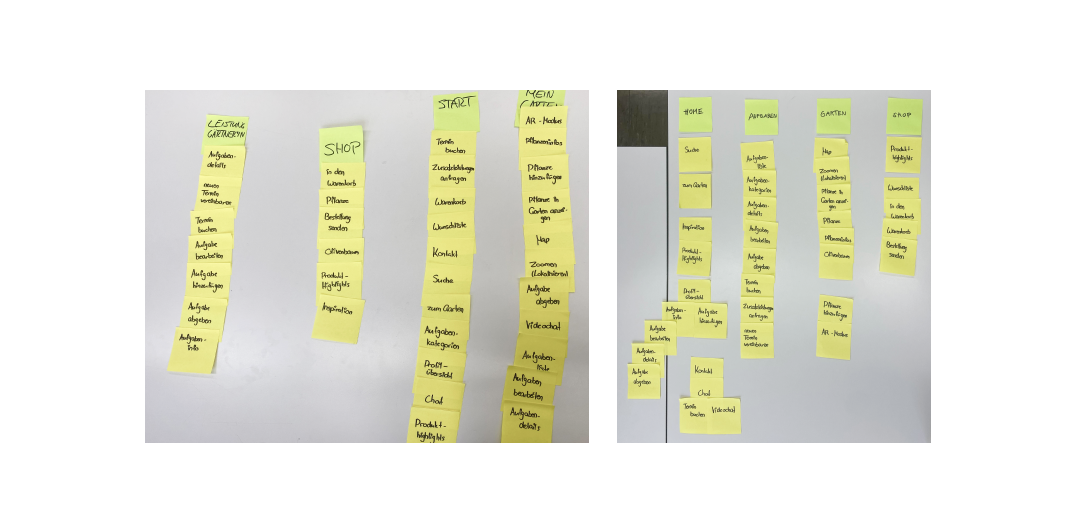 LEISTUNG
GÄRTNER*IN
Aufgaben-
details
neuen
Termin
vereinbaren
Termin
buchen
Aufgabe
bearbeiten
Aufgabe
hinzufügen
Aufgabe
abgeben
Aufgaben-
info
SHOP
in den
Warenkorb
Pflanze
Bestellung
senden
Olivenbaum
Produkt-
Highlights
Inspiration
START
Termin
buchen
Zusatzleistungen
anfragen
Warenkorb
Wunschliste
Kontakt
Suche
zum Garten
Aufgaben-
kategorien
Profil-
übersicht
Chat
Produkt-
highlights
MEIN
GARTEN
AR-Modus
Pflanzeninfos
Pflanze
hinzufügen
Pflanze in
Garten anzei-
gen
Map
Zoomen
(Lokalisieren)
Aufgabe
abgeben
Videochat
Aufgaben-
liste
Aufgaben
bearbeiten
Aufgaben-
details
HOME
Suche
zum Garten
Inspiration
Produkt-
Highlights
Profil-
übersicht
Aufgaben-
info
Aufgabe
hinzufügen
Aufgabe
bearbeiten
Aufgaben-
details
Aufgabe
abgeben
Kontakt
Chat
Termin
buchen
Videochat
AUFGABEN
Aufgaben-
liste
Aufgaben-
kategorien
Aufgaben-
details
Aufgaben
bearbeiten
Aufgabe
abgeben
Termin
buchen
Zusatzleistungen
anfragen
neuen
Termin
vereinbaren
GARTEN
Map
Zoomen
(Lokalisieren)
Pflanze in
Garten anzei-
gen
Pflanze
Pflanzeninfos
Olivenbaum
Pflanze
hinzufügen
AR-Modus
SHOP
Produkt-
highlights
Wunschliste
in den
Warenkorb
Warenkorb
Bestellung
senden